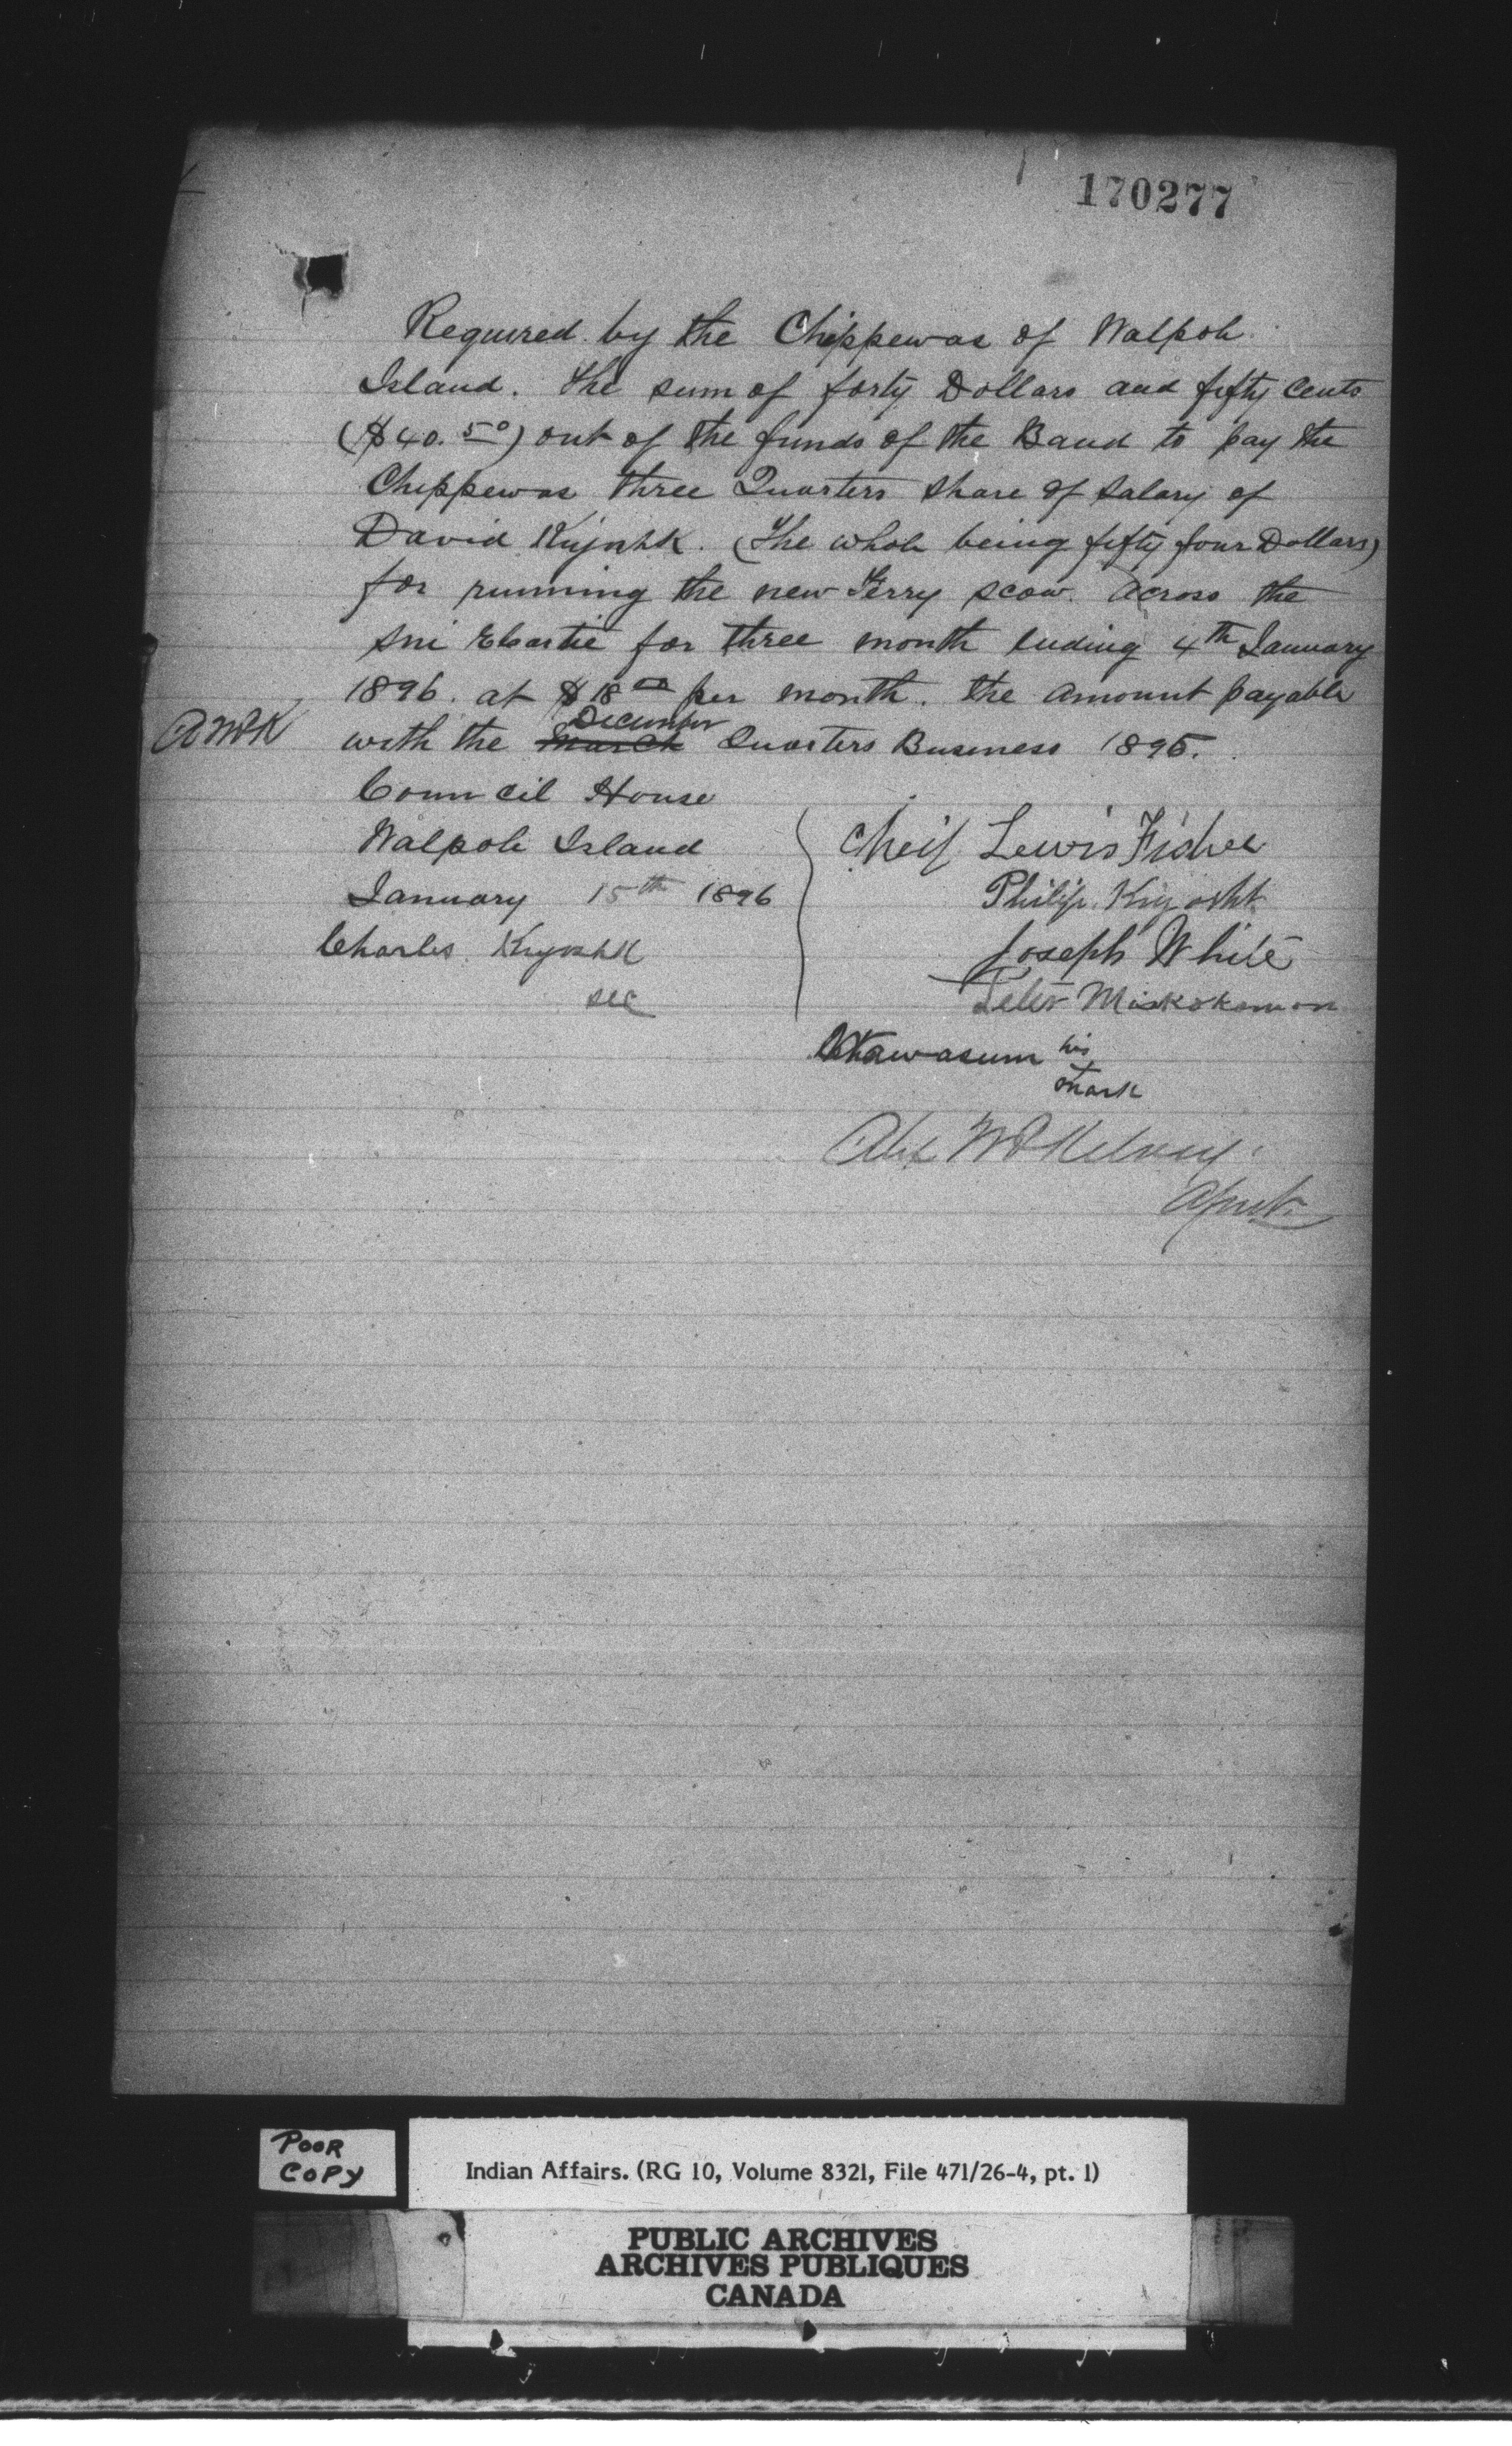 170277
Required by the Chippewas of Walpole
Island. The sum of forty Dollars and fifty Cents
($40.50) out of the funds of the Band to pay the
Chippewas three Quarters share of Salary of
David Kiyoshk. (The whole being fifty four Dollars)
for running the new Ferry scow. Across the
Sni Ecartie for three month ending 4th January
1896. at $18.00 per month. the amount payable
December
AMcK with the March Quarters Business 1895.
Council House
Walpole Island
January 15th 1896
Charles Kiyoshk
sec
Cheif Lewis Fisher
Philip Kiyoshk
Joseph White
Peter Miskokomon
his
mark
Alex McKelvey
Agent
POOR
COPY
Indian Affairs. (RG 10, Volume 8321, File 471/26-4, pt. 1)
PUBLIC ARCHIVES
ARCHIVES PUBLIQUES
CANADA